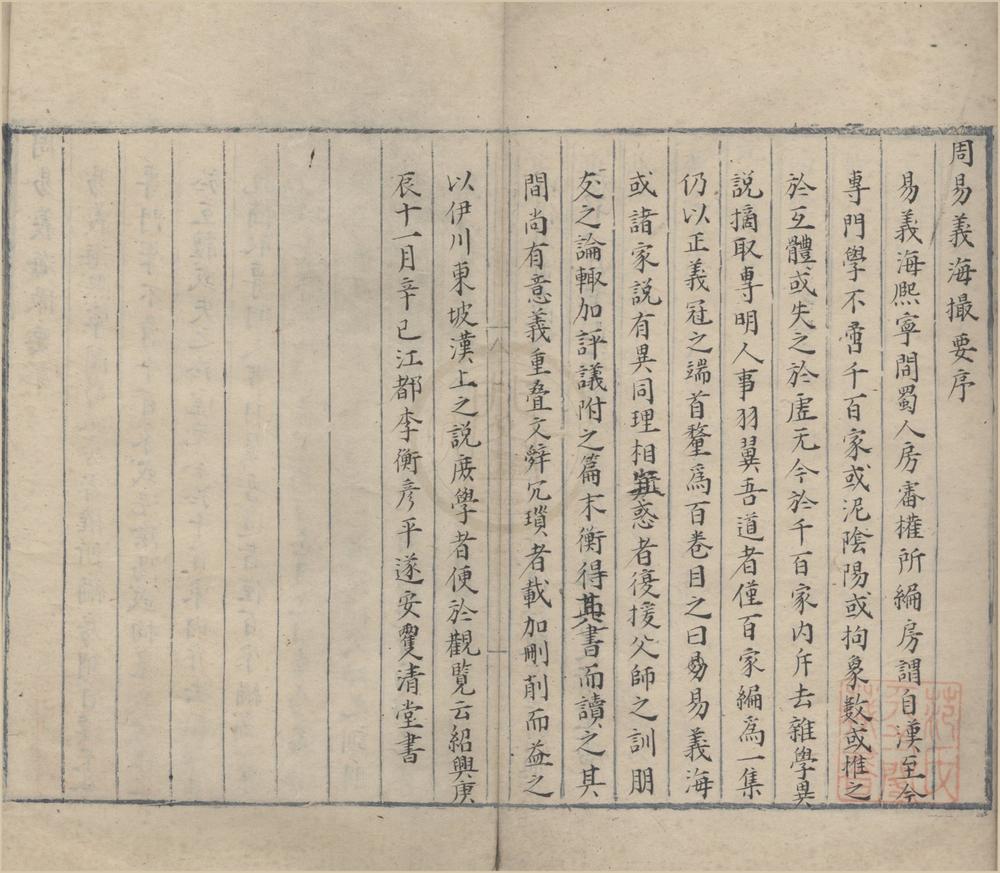 周易義海撮要序
易義海熈寧間蜀人房審權所編房謂自漢至今
專門學不啻千百家或泥陰陽或拘象數或推之
於互體或失之於虛无今於千百家内斥去雜學異
說摘取專明人事羽翼吾道者僅百家編爲一集
仍以正義冠之端首釐爲百卷目之曰易易義海
或諸家說有異同理相疑惑者復援父師之訓朋
友之論輙加評議附之篇末衡得其書而讀之其
間尚有意義重疊文辤冗瑣者載加刪削而益之
以伊川東坡漢上之說庶學者便於觀覽云紹興庚
辰十一月辛巳江都李衡彥平遂安雙清堂書